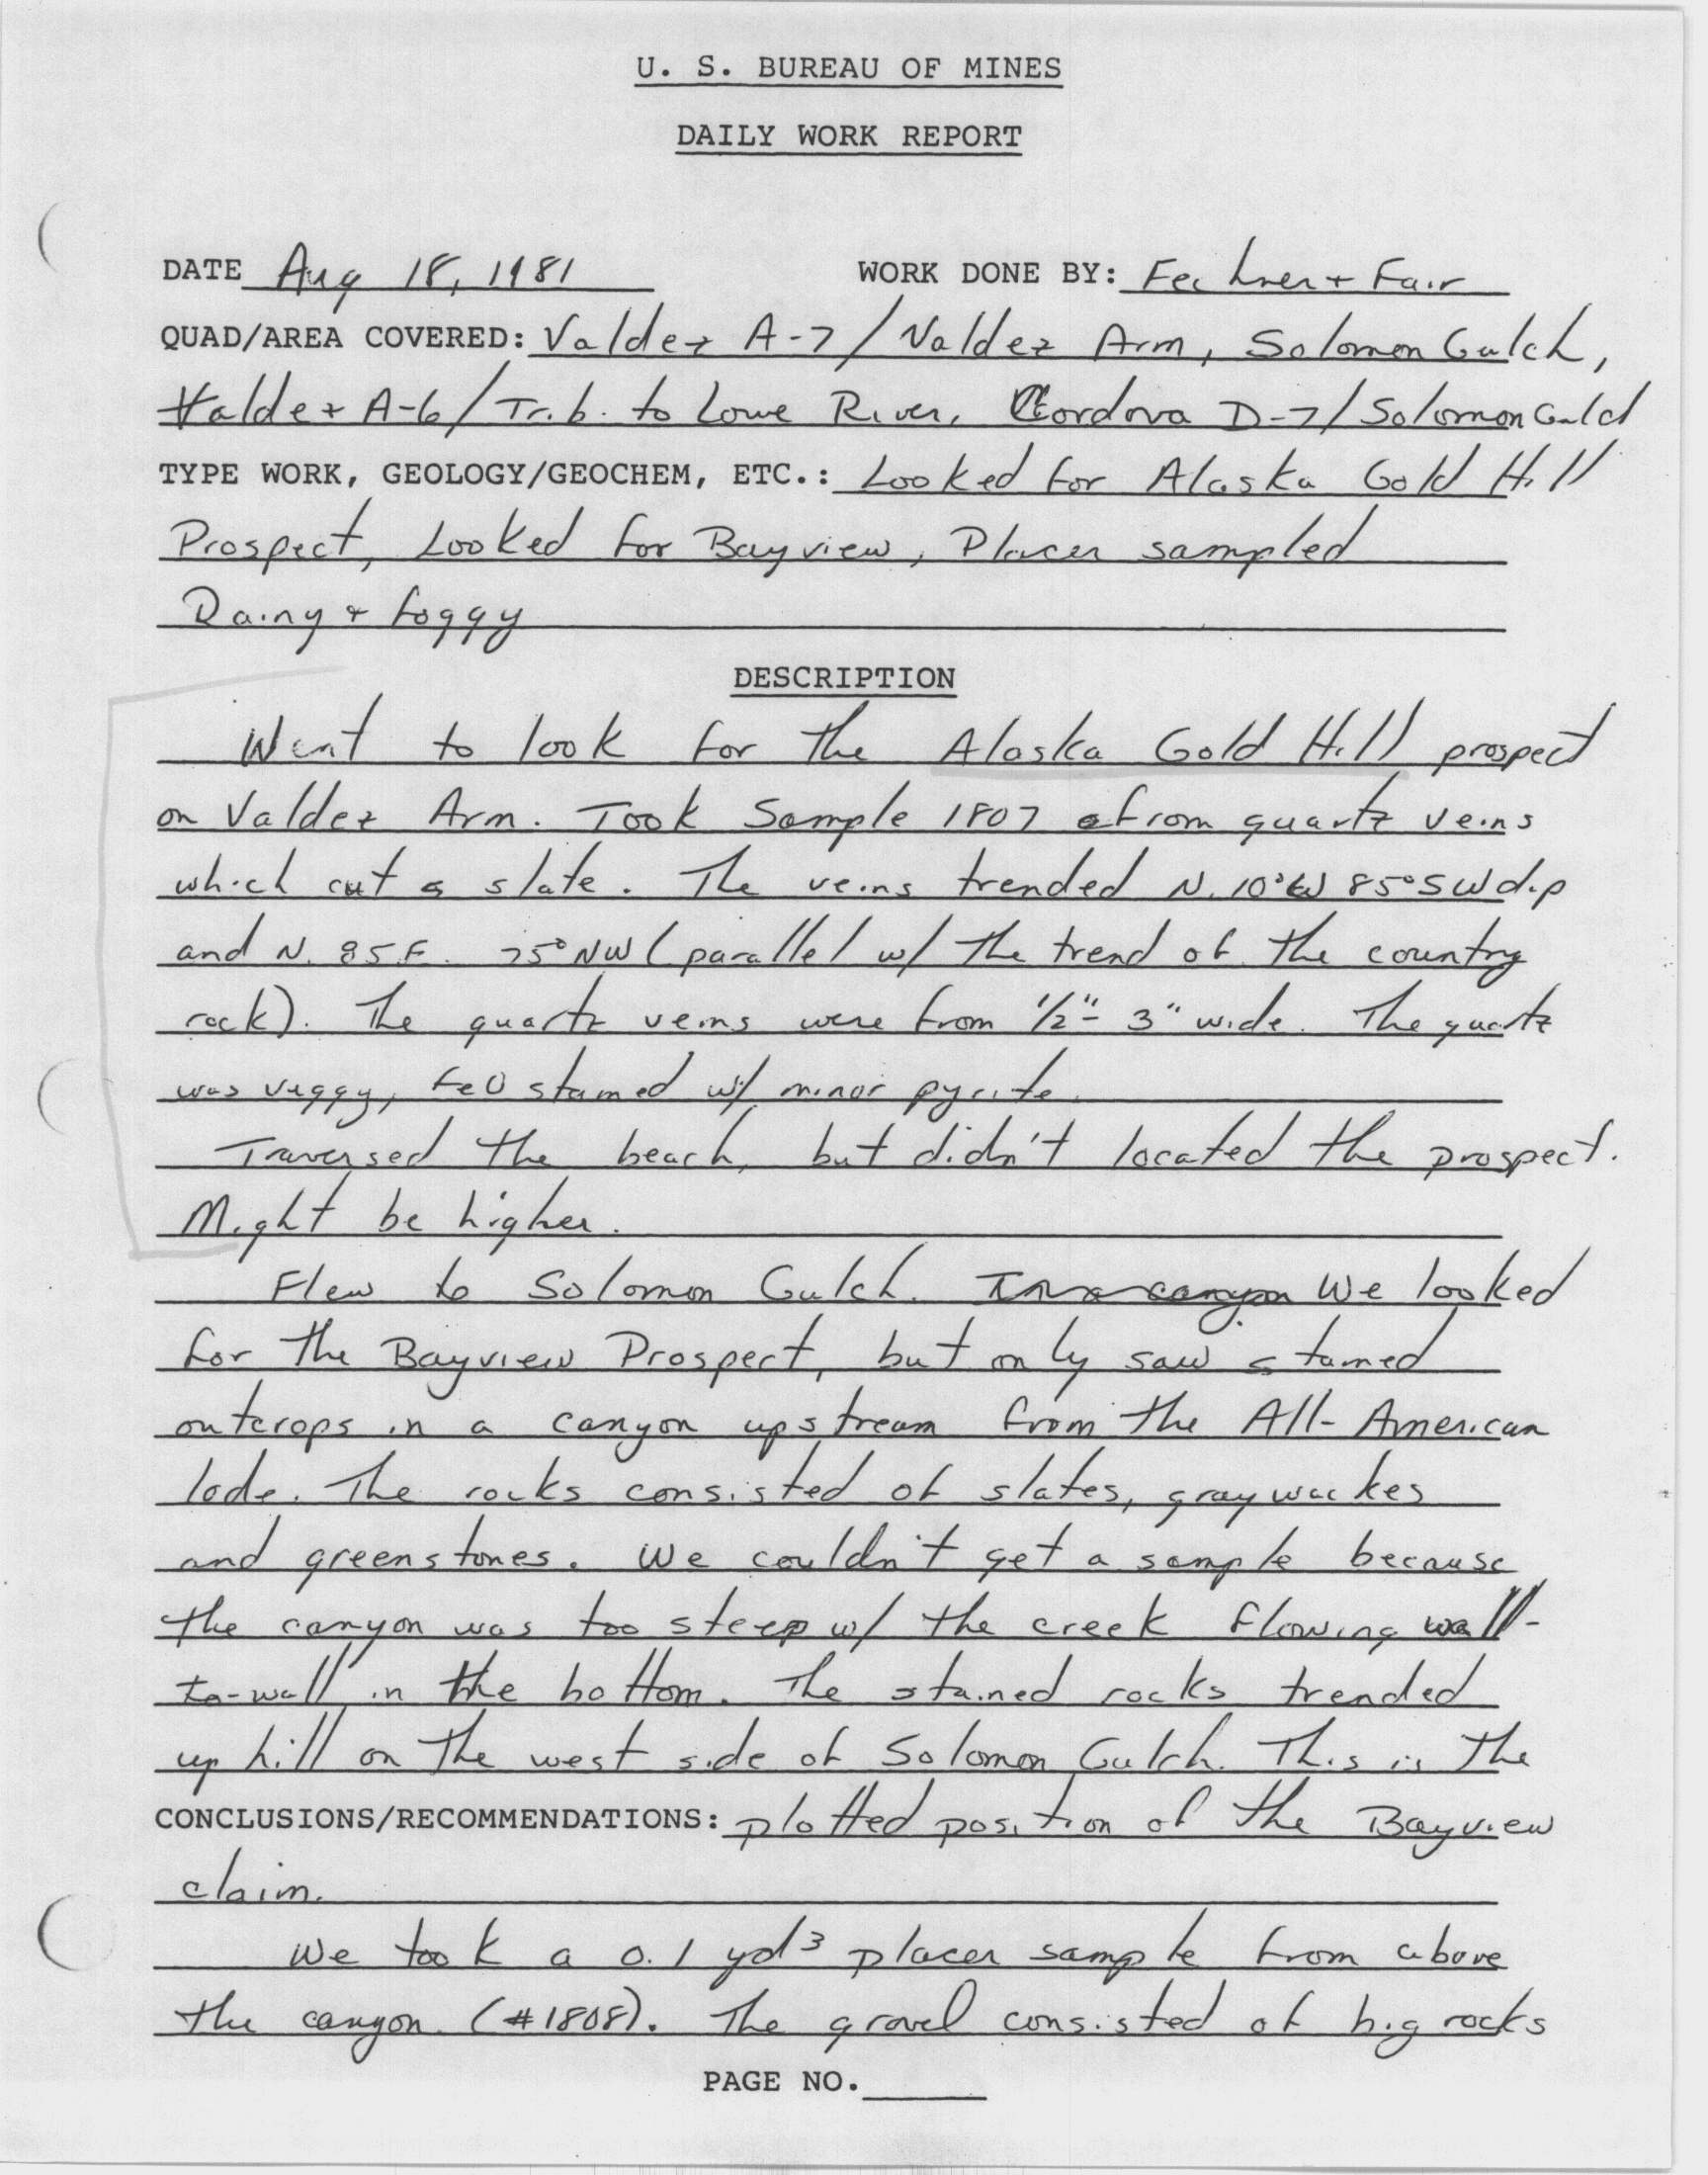 U. S. BUREAU OF MINES
DAILY WORK REPORT
DATE Aug 18, 1981 WORK DONE BY: Fechner + Fair
QUAD/AREA COVERED: Valdez A-7/Valdez Arm, Solomon Gulch,
Valdez A-6/Trib. to Lowe River, Cordova D-7/Solomon Gulch
TYPE WORK, GEOLOGY/GEOCHEM, ETC.: Looked for Alaska Gold Hill
Prospect, Looked for Bayview, Placer sampled
Rainy + foggy
DESCRIPTION
Went to look for the Alaska Gold Hill prospect
on Valdez Arm. Took Sample 1807 from quartz veins
which cut a slate. The veins trended N. 10°W 85°SW dip
and N. 85 E. 75°NW (parallel w/ the trend of the country
rock). The quartz veins were from 1/2"- 3" wide. The quartz
was vuggy, FeO stained w/ minor pyrite.
Traversed the beach, but didn't located the prospect.
Might be higher.
Flew to Solomon Gulch. In a canyon We looked
for the Bayview Prospect, but only saw stained
outcrops in a canyon upstream from the All-American
lode. The rocks consisted of slates, graywackes
and greenstones. We couldn't get a sample because
the canyon was too steep w/ the creek flowing wall-
to-wall in the bottom. The stained rocks trended
up hill on the west side of Solomon Gulch. This is the
CONCLUSIONS/RECOMMENDATIONS: plotted position of the Bayview
claim.
We took a 0.1 yd³ placer sample from above
the canyon. (#1808). The gravel consisted of big rocks
PAGE NO.